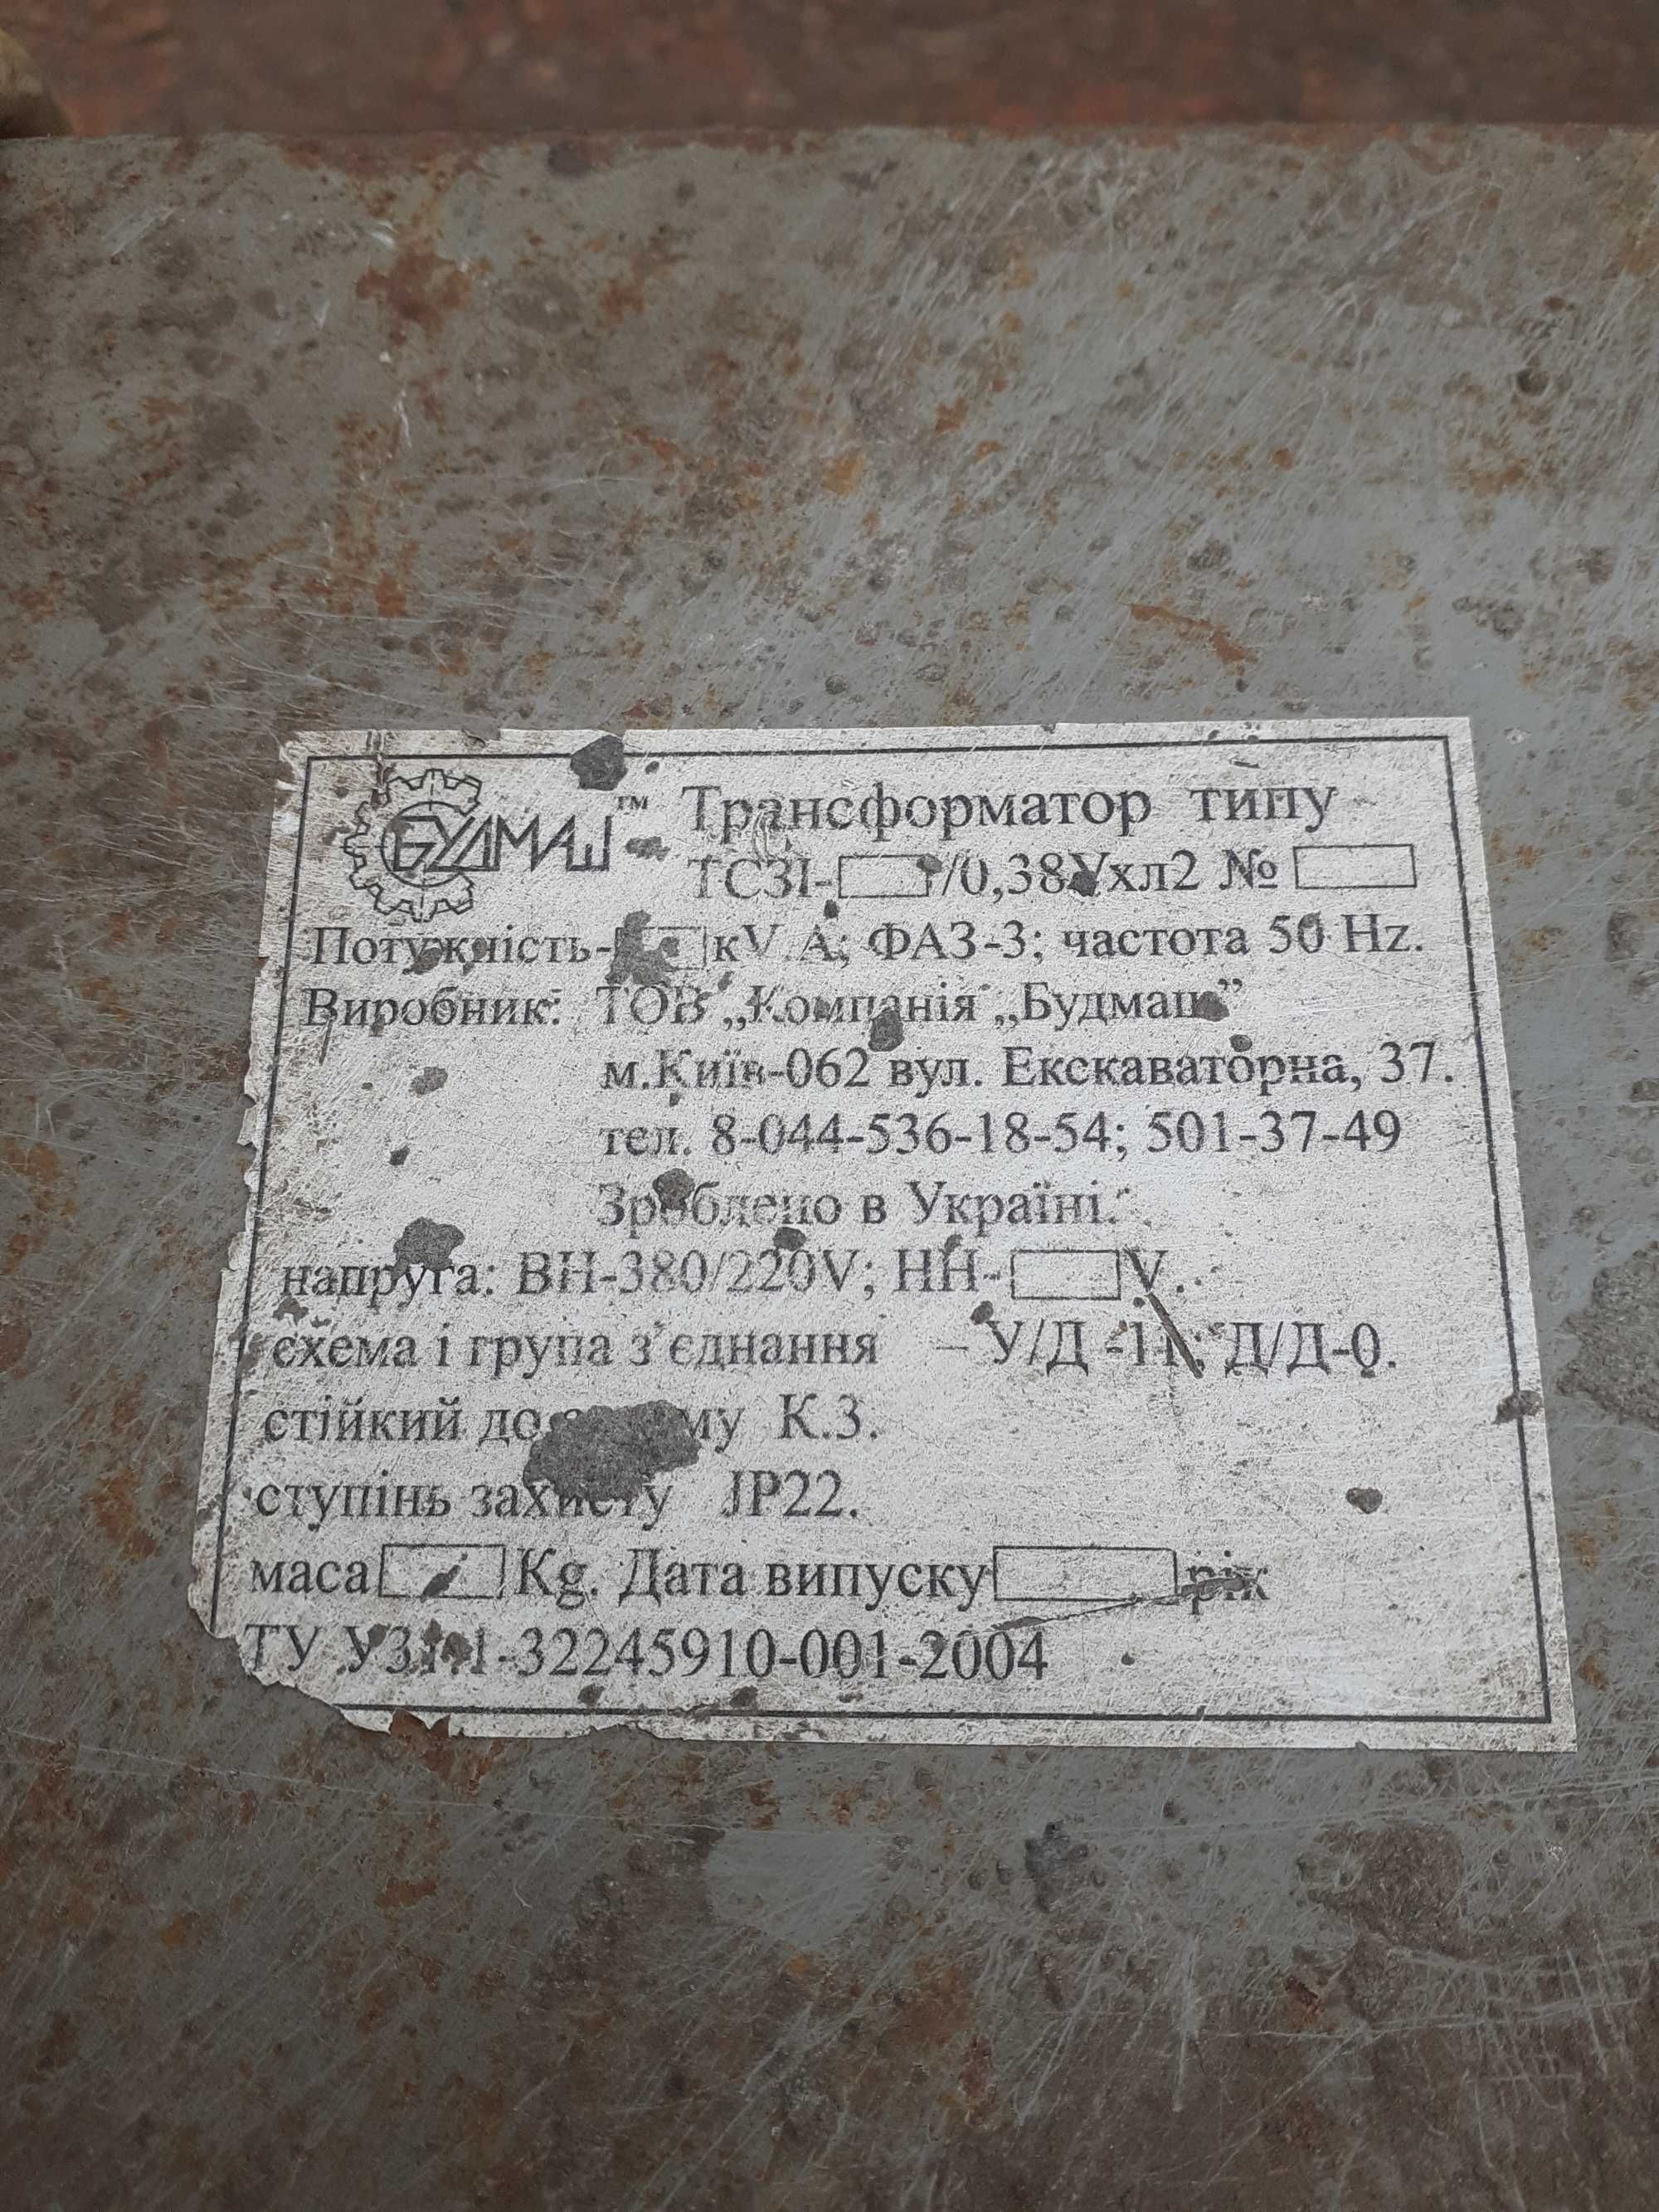 БУДМАШ™ Трансформатор типу
ТСЗІ- /0,38Ухл2 №
Потужність- кV.A; ФАЗ-3; частота 50 Hz.
Виробник: ТОВ „Компанія „Будмаш”
м.Київ-062 вул. Екскаваторна, 37.
тел. 8-044-536-18-54; 501-37-49
Зроблено в Україні.
напруга: ВН-380/220V; НН- V.
схема і група з’єднання – У/Д -11; Д/Д-0.
стійкий до К.З.
ступінь захисту JP22.
маса Kg. Дата випуску рік
ТУ У31.1-32245910-001-2004